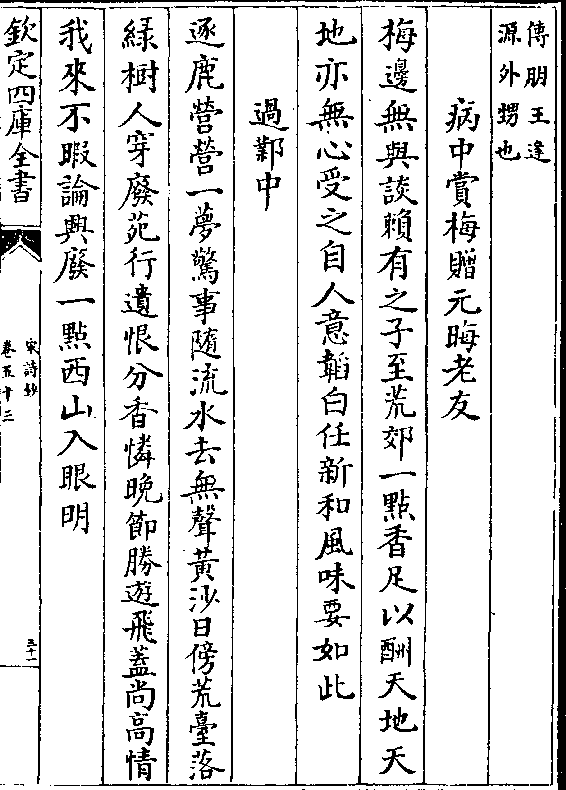 傅朋王逢
源外甥也
病中賞梅贈元晦老友
梅邊無與談賴有之子至荒郊一點香足以酬天地天
地亦無心受之自人意韜白任新和風味要如此
過鄴中
逐鹿營營一夢驚事隨流水去無聲黃沙日傍荒臺落
綠樹人穿廢苑行遺恨分香憐晚節勝遊飛蓋尚高情
我來不暇論興廢一點西山入眼明
欽定四庫全書
宋詩鈔
卷五十三
三十一